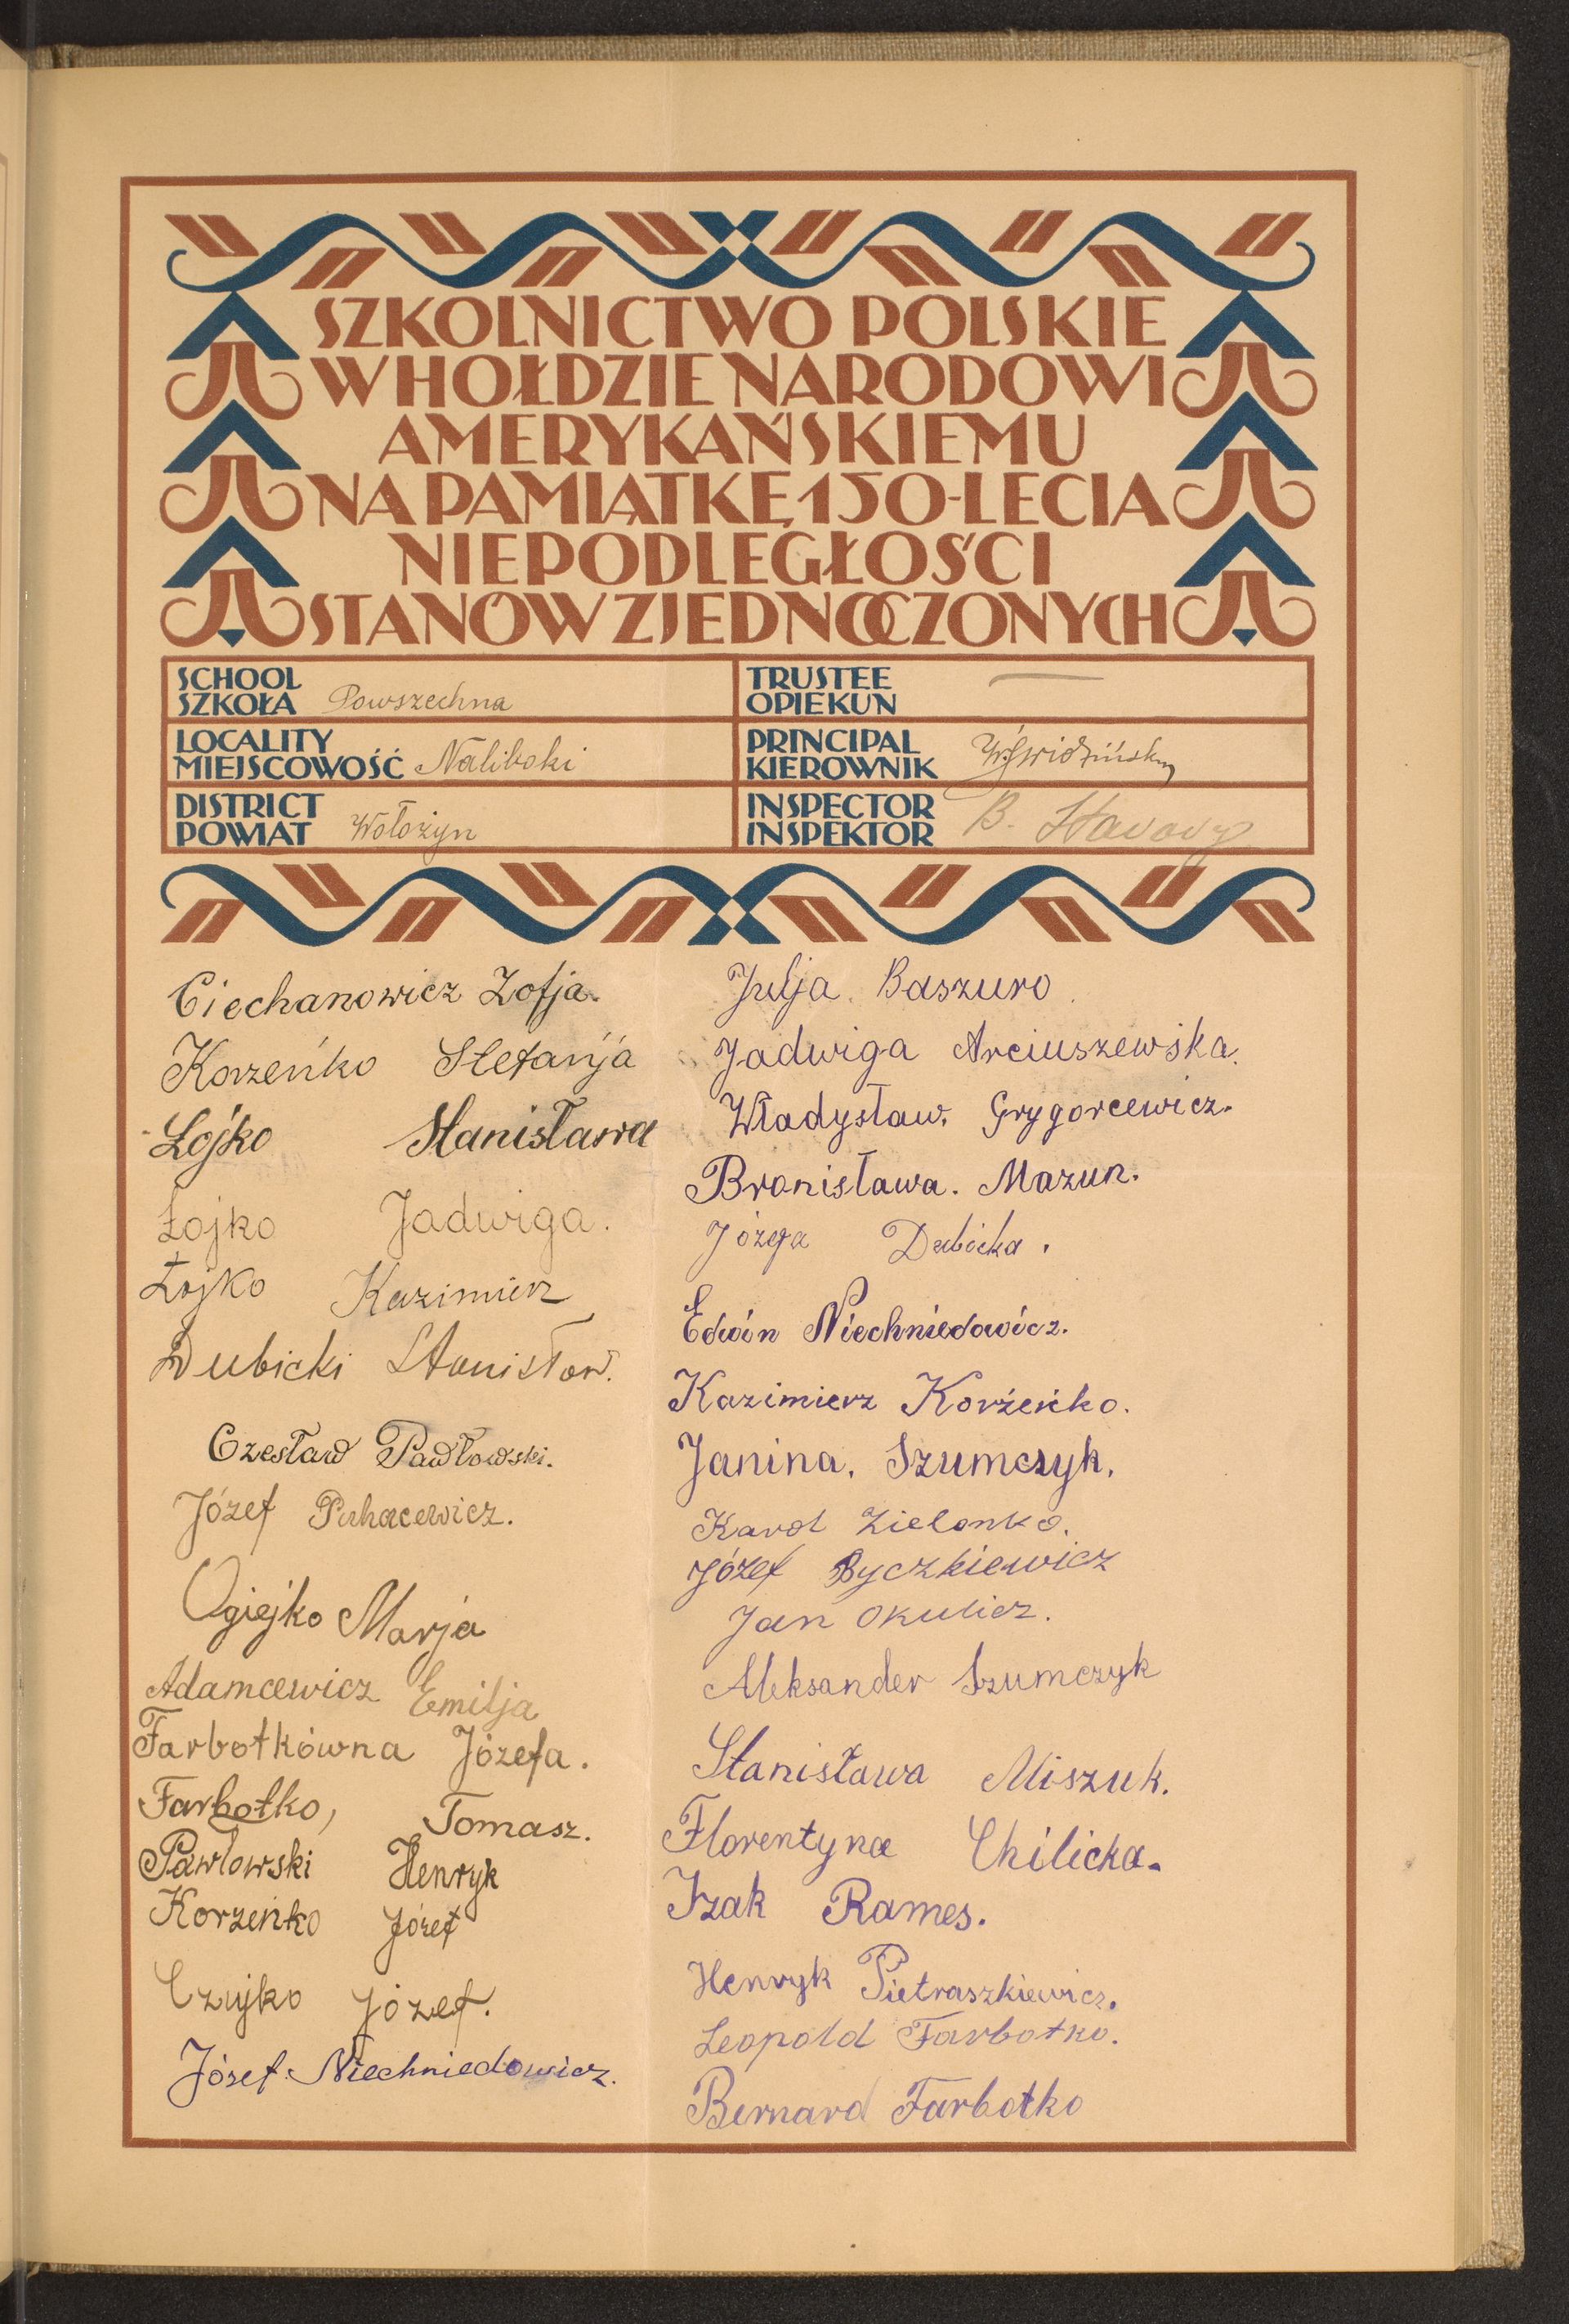 SZKOLNICTWO POLSKIE
W HOŁDZIE NARODOWI
AMERYKAŃSKIEMU
NA PAMIĄTKĘ 150-LECIA
NIEPODLEGŁOŚCI
STANÓW ZJEDNOCZONYCH
SCHOOL
SZKOŁA Powszechna
LOCALITY
MIEJSCOWOŚĆ Naliboki
DISTRICT
POWIAT Wołożyn
TRUSTEE
OPIEKUN —
PRINCIPAL
KIEROWNIK W. Świdziński
INSPECTOR
INSPEKTOR B.
Ciechanowicz Zofja.
Korzeńko Stefanja
Łojko Stanisława
Łojko Jadwiga.
Łojko Kazimierz
Dubicki Stanisław.
Czesław Pawłowski.
Józef Puhacewicz.
Ogiejko Marja
Adamcewicz Emilja
Farbotkówna Józefa.
Farbotko, Tomasz.
Pawłowski Henryk
Korzeńko Józef
Czujko Józef.
Józef Niechniedowicz.
Julja Baszuro
Jadwiga Arciuszewska.
Władysław. Grygorcewicz.
Bronisława. Mazun.
Józefa Dubicka.
Edwin Niechniedowicz.
Kazimierz Korżeńko.
Janina. Szumczyk.
Karol Zielonko.
Józef Byczkiewicz
Jan Okulicz.
Aleksander Szumczyk
Stanisława Miszuk.
Florentyna Chilicka.
Izak Rames.
Henryk Pietraszkiewicz.
Leopold Farbotko.
Bernard Farbotko